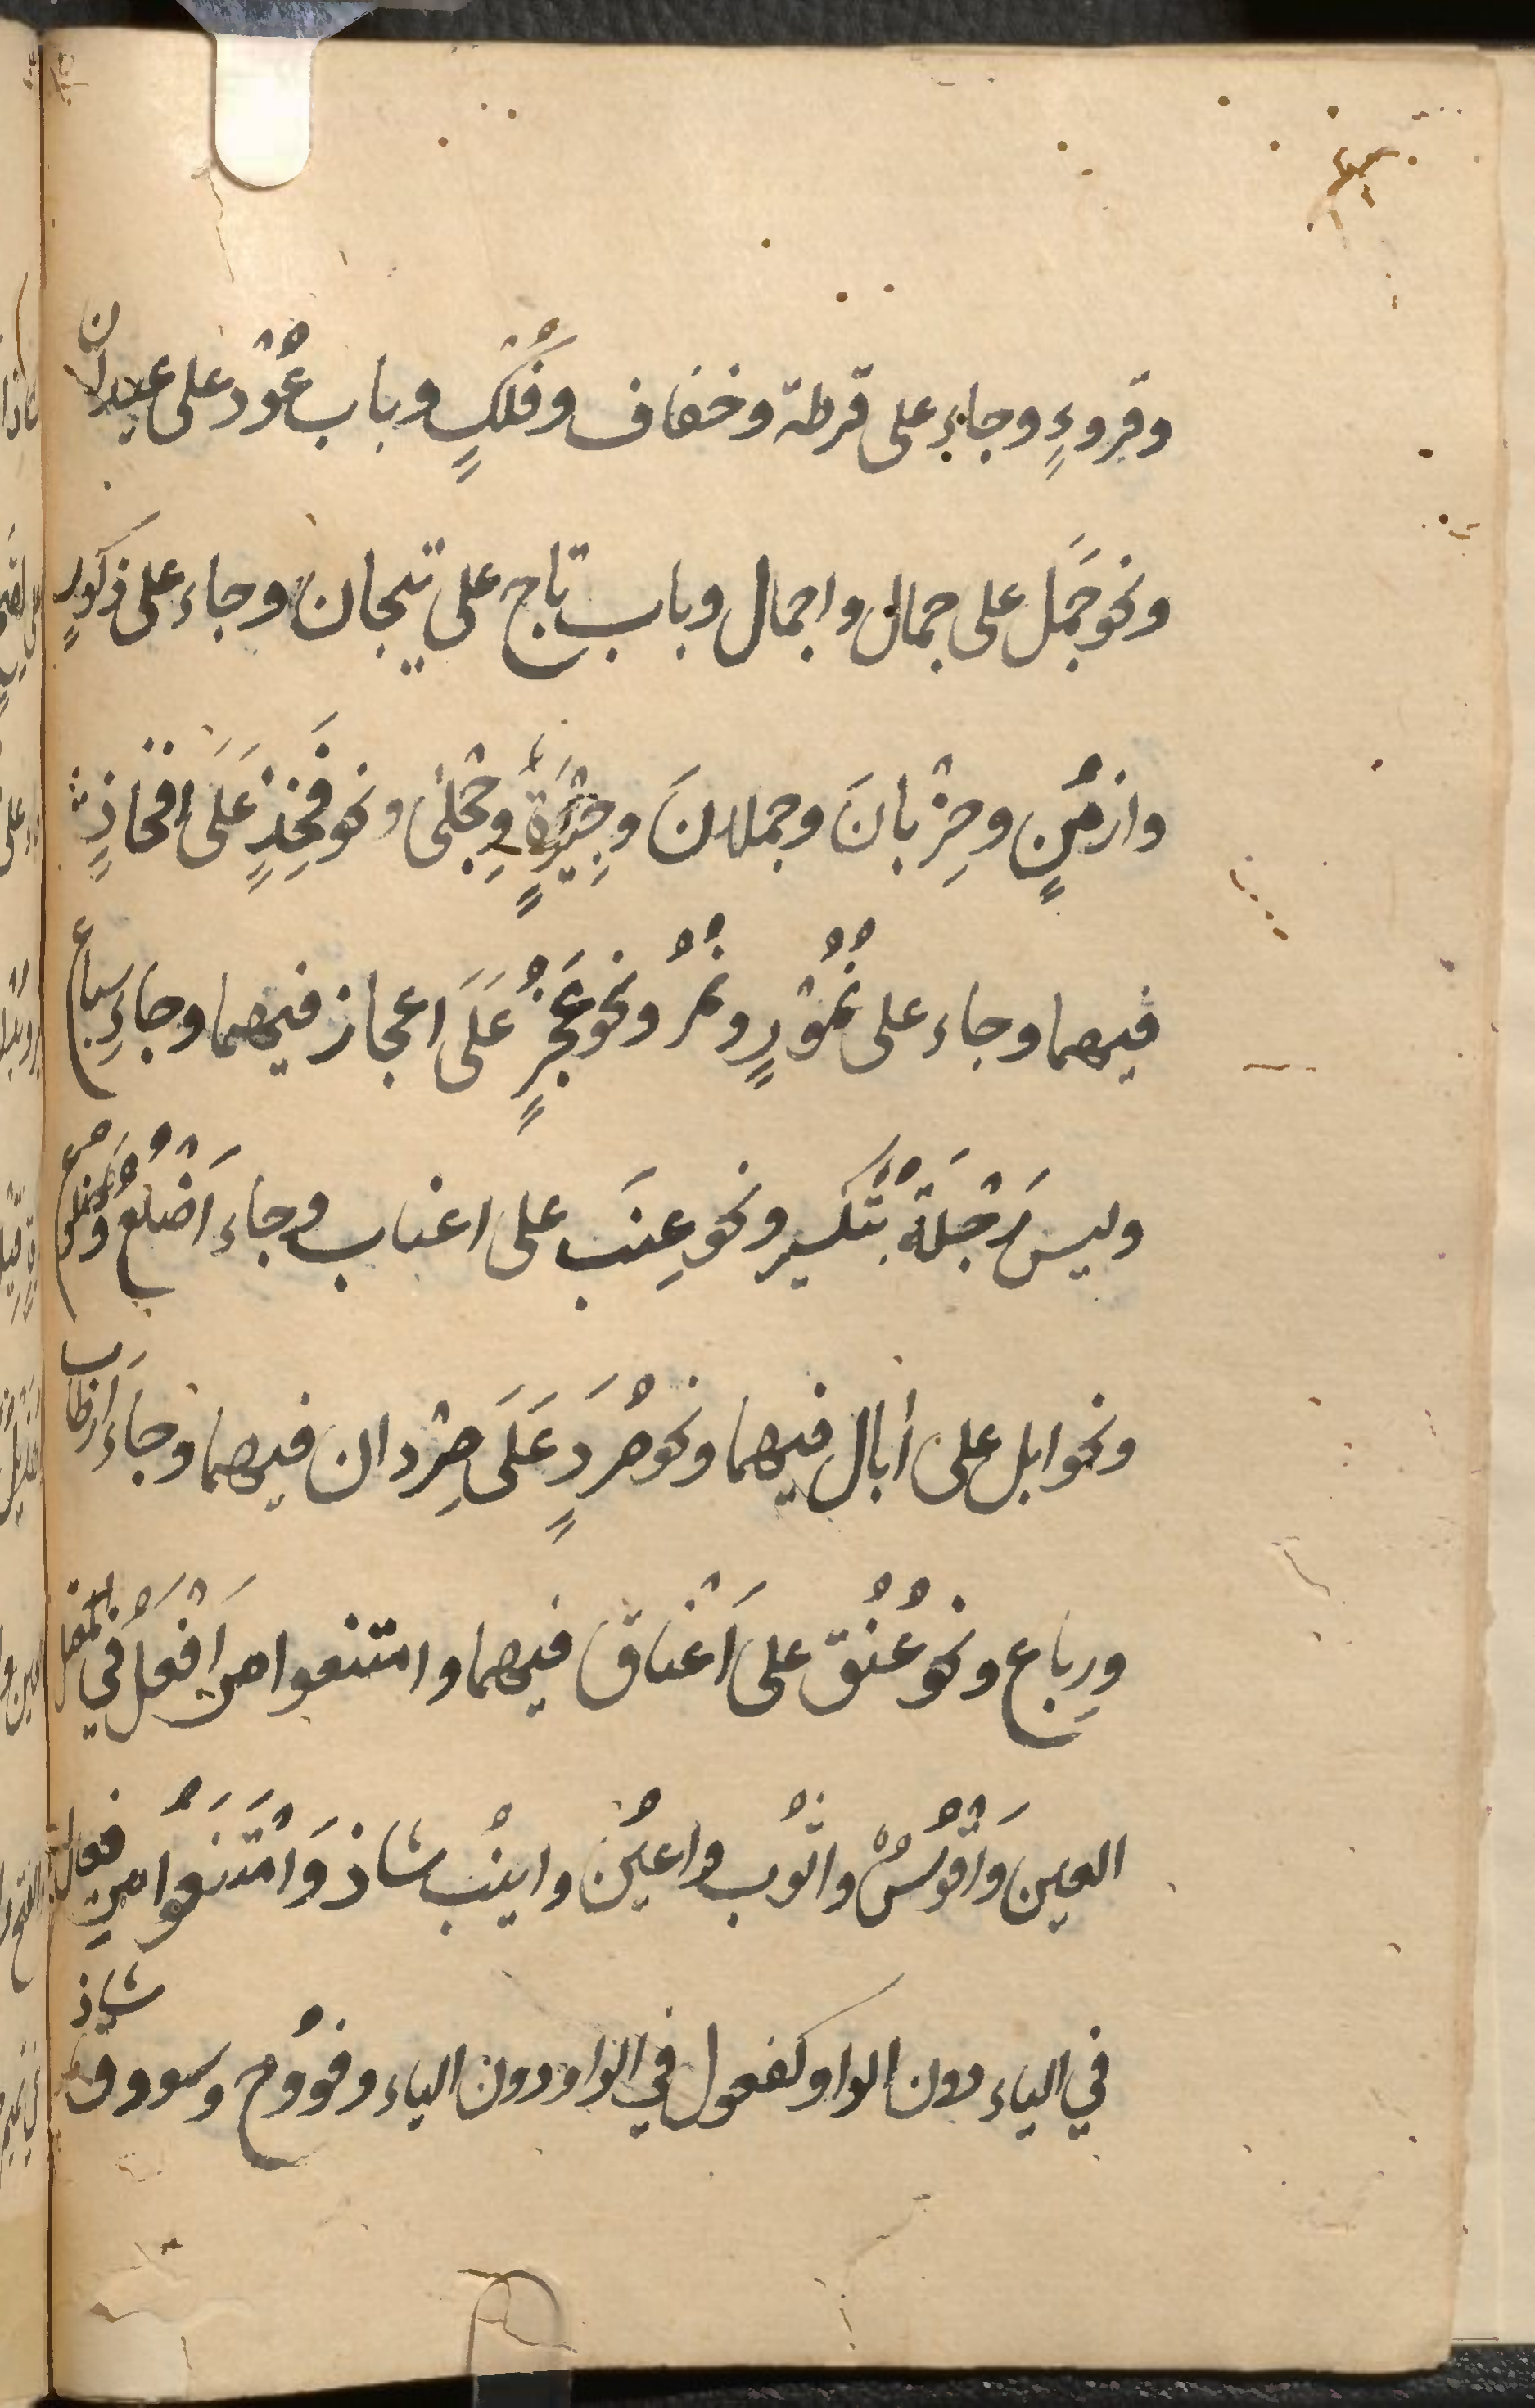 وقروءٍ وجاء على قرطة وخفاف وفُلْكٍ وباب عُوْد على عيدان
ونحو جَمَل على جمال واجمال وباب تاج على تيجان وجاء على ذكورٍ
وازمُنٍ وخِرْبانَ وجملانَ وجِيْرَةٍ وحِجْلىٰ ونحو فَخِذٍ عَلَى افخاذٍ
فيهما وجاء على نُمُوْرٍ ونُمُرٌ ونحو عَجُزٍ عَلَى اعجاز فيهما وجاءَ سِباع
وليس رَجْلَةٌ بتكسير ونحو عِنَب على اعناب وجاءَ اَضْلُع وضُلوع
ونحو ابل على اٰبال فيهما ونحو صُرَدٍ عَلَى صِرْدان فيهما وجاءَ اَرطاب
ورِباع ونحو عُنُق على اَعْناق فيهما وامتنعوا من اَفْعُل في المعتل
العين وَاَقْوُسٌ واثْوُب واعيُن واينُب شاذ وَامْتَنَعُوا مِن فعال
في الياء دون الواو كفعول في الواو دون الياء وفوُوج وسووق شاذ